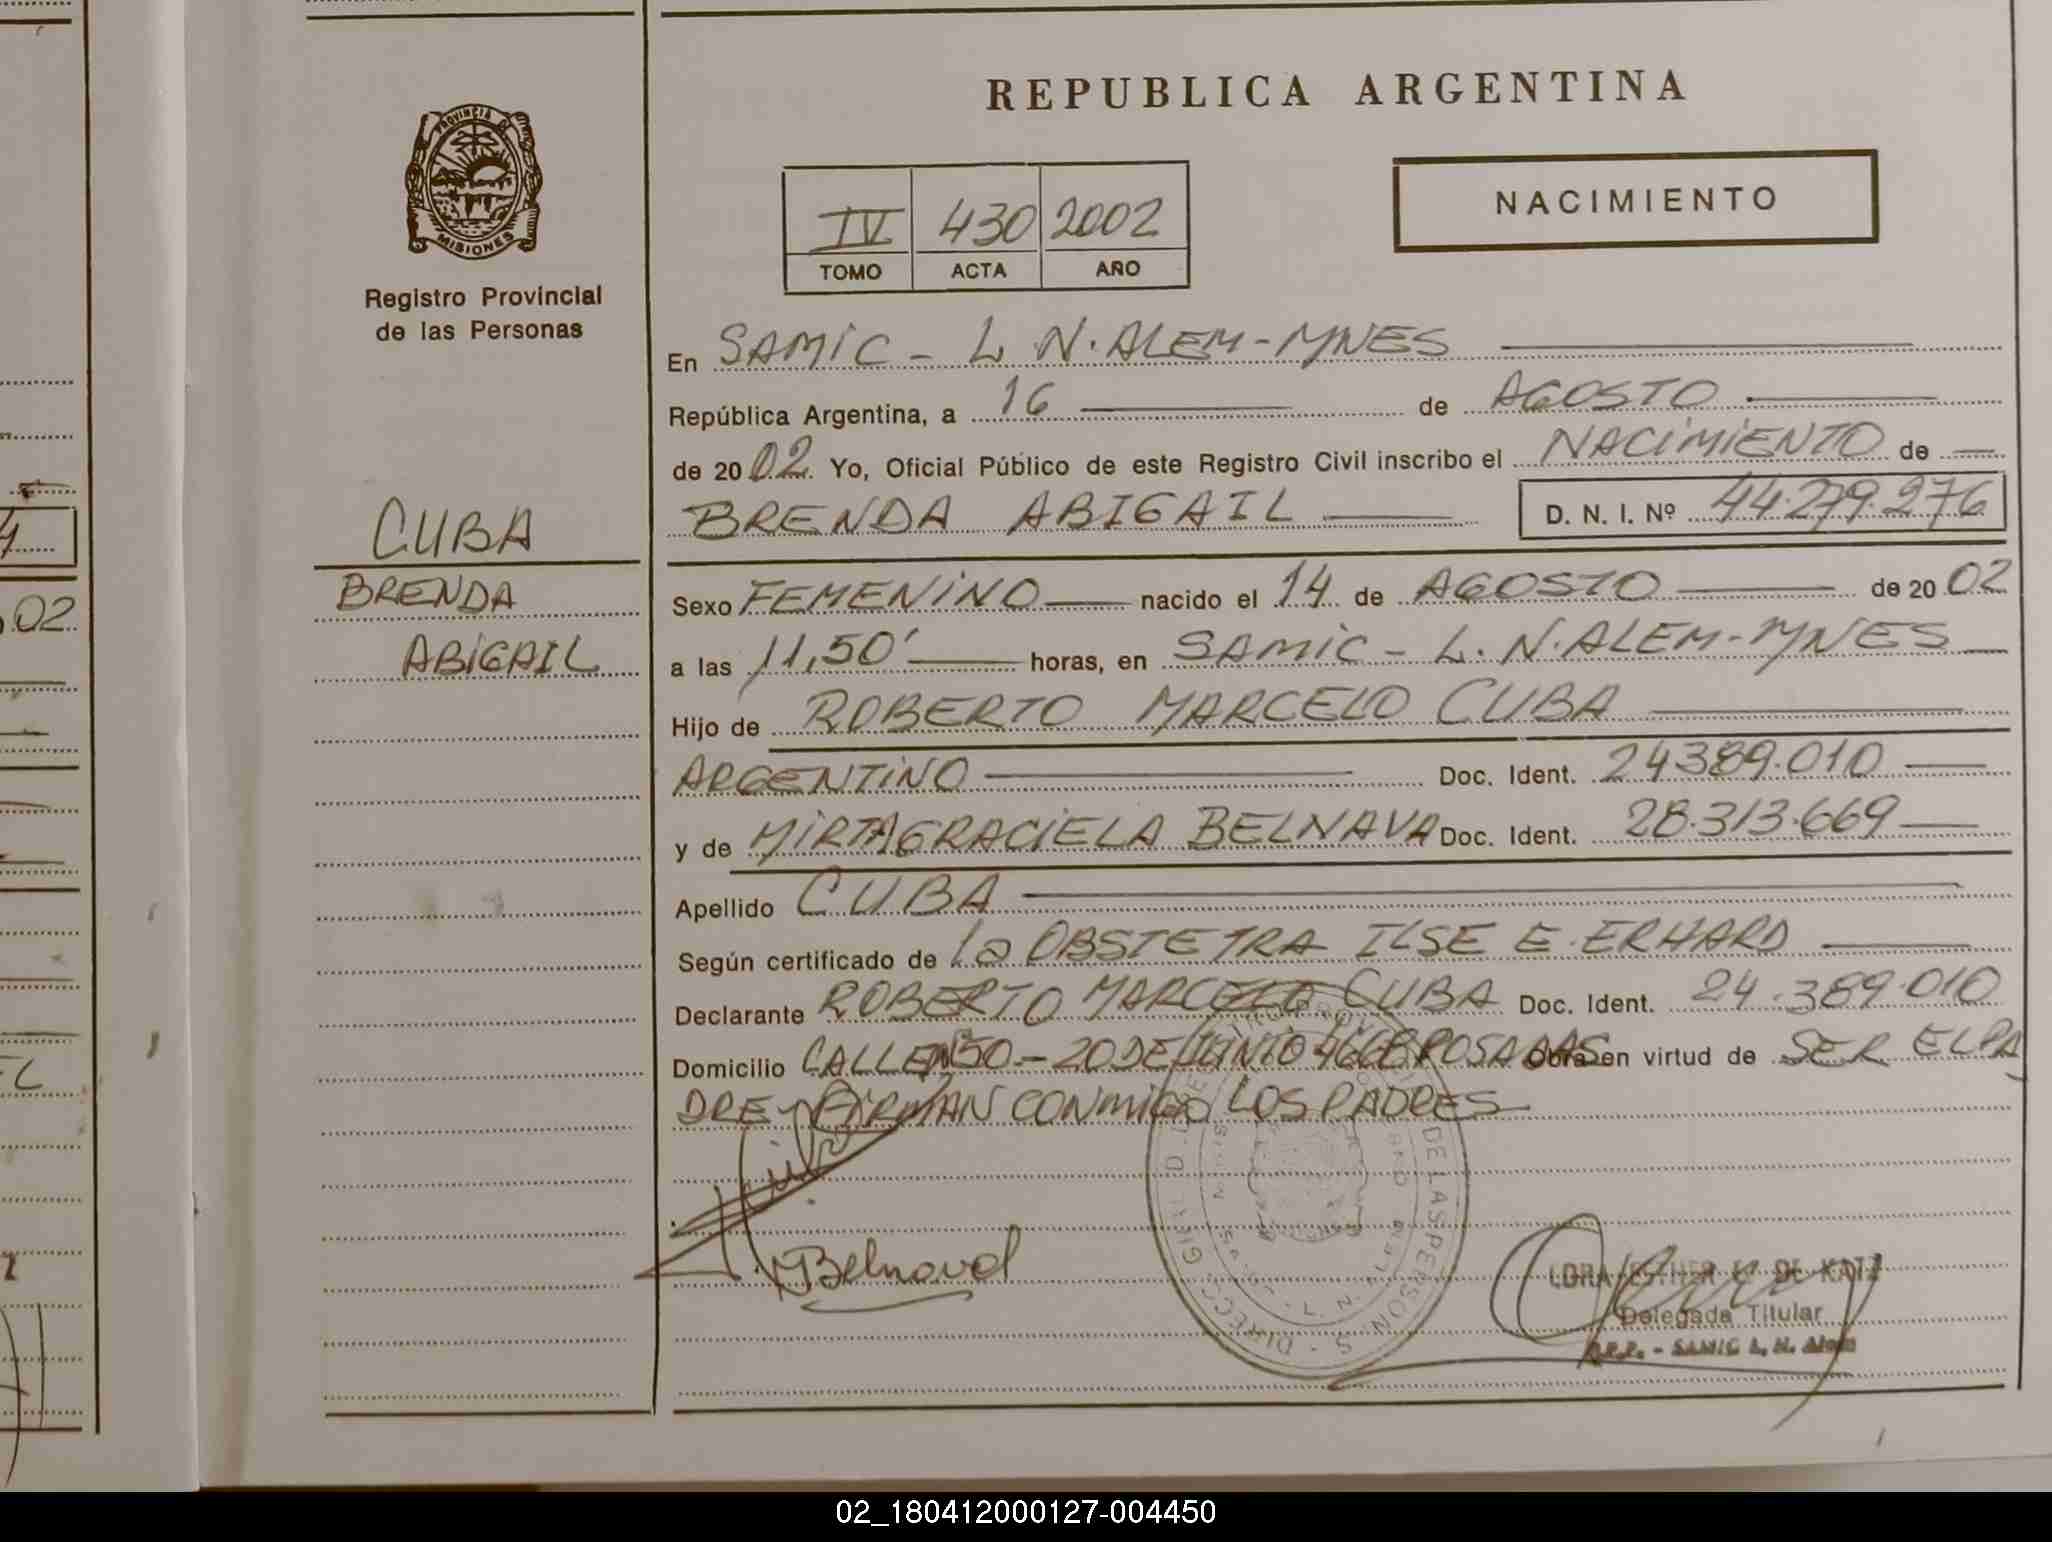 REPUBLICA ARGENTINA
PROVINCIA DE
MISIONES
Registro Provincial
de las Personas
IV 430 2002
TOMO ACTA AÑO
NACIMIENTO
En SAMIC - L. N. ALEM - MNES
República Argentina, a 16 de AGOSTO
de 2002. Yo, Oficial Público de este Registro Civil inscribo el NACIMIENTO de
BRENDA ABIGAIL D. N. I. Nº 44.279.276
CUBA
BRENDA
ABIGAIL
Sexo FEMENINO nacido el 14 de AGOSTO de 2002
a las 11,50' horas, en SAMIC - L. N. ALEM - MNES
Hijo de ROBERTO MARCELO CUBA
ARGENTINO Doc. Ident. 24389.010
y de MIRTA GRACIELA BELNAVA Doc. Ident. 28.313.669
Apellido CUBA
Según certificado de la OBSTETRA ILSE E. ERHARD
Declarante ROBERTO MARCELO CUBA Doc. Ident. 24.389.010
Domicilio CALLE 50 - 20 DE JUNIO POSADAS Obra en virtud de SER EL PA
DRE - FIRMAN CONMIGO LOS PADRES
DE LAS PERSONAS
Belnava
ESTHER DE KATZ
Delegada Titular
SAMIC L. N. Alem
02
02_180412000127-004450